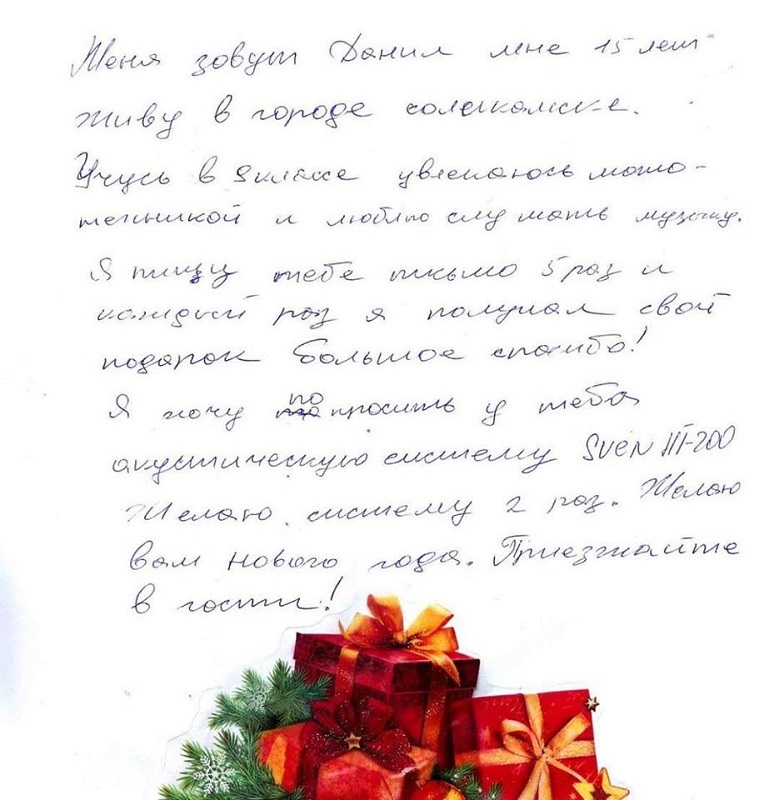 Меня зовут Данил мне 15 лет
живу в городе соликамске.
Учусь в 9 классе увлекаюсь мото-
техникой и люблю слушать музыку.
Я пишу тебе письмо 5 раз и
каждый раз я получал свой
подарок большое спасибо!
Я хочу попросить у тебя
акустическую систему SVEN III-200
Желаю систему 2 раз. Желаю
вам нового года. Приезжайте
в гости!